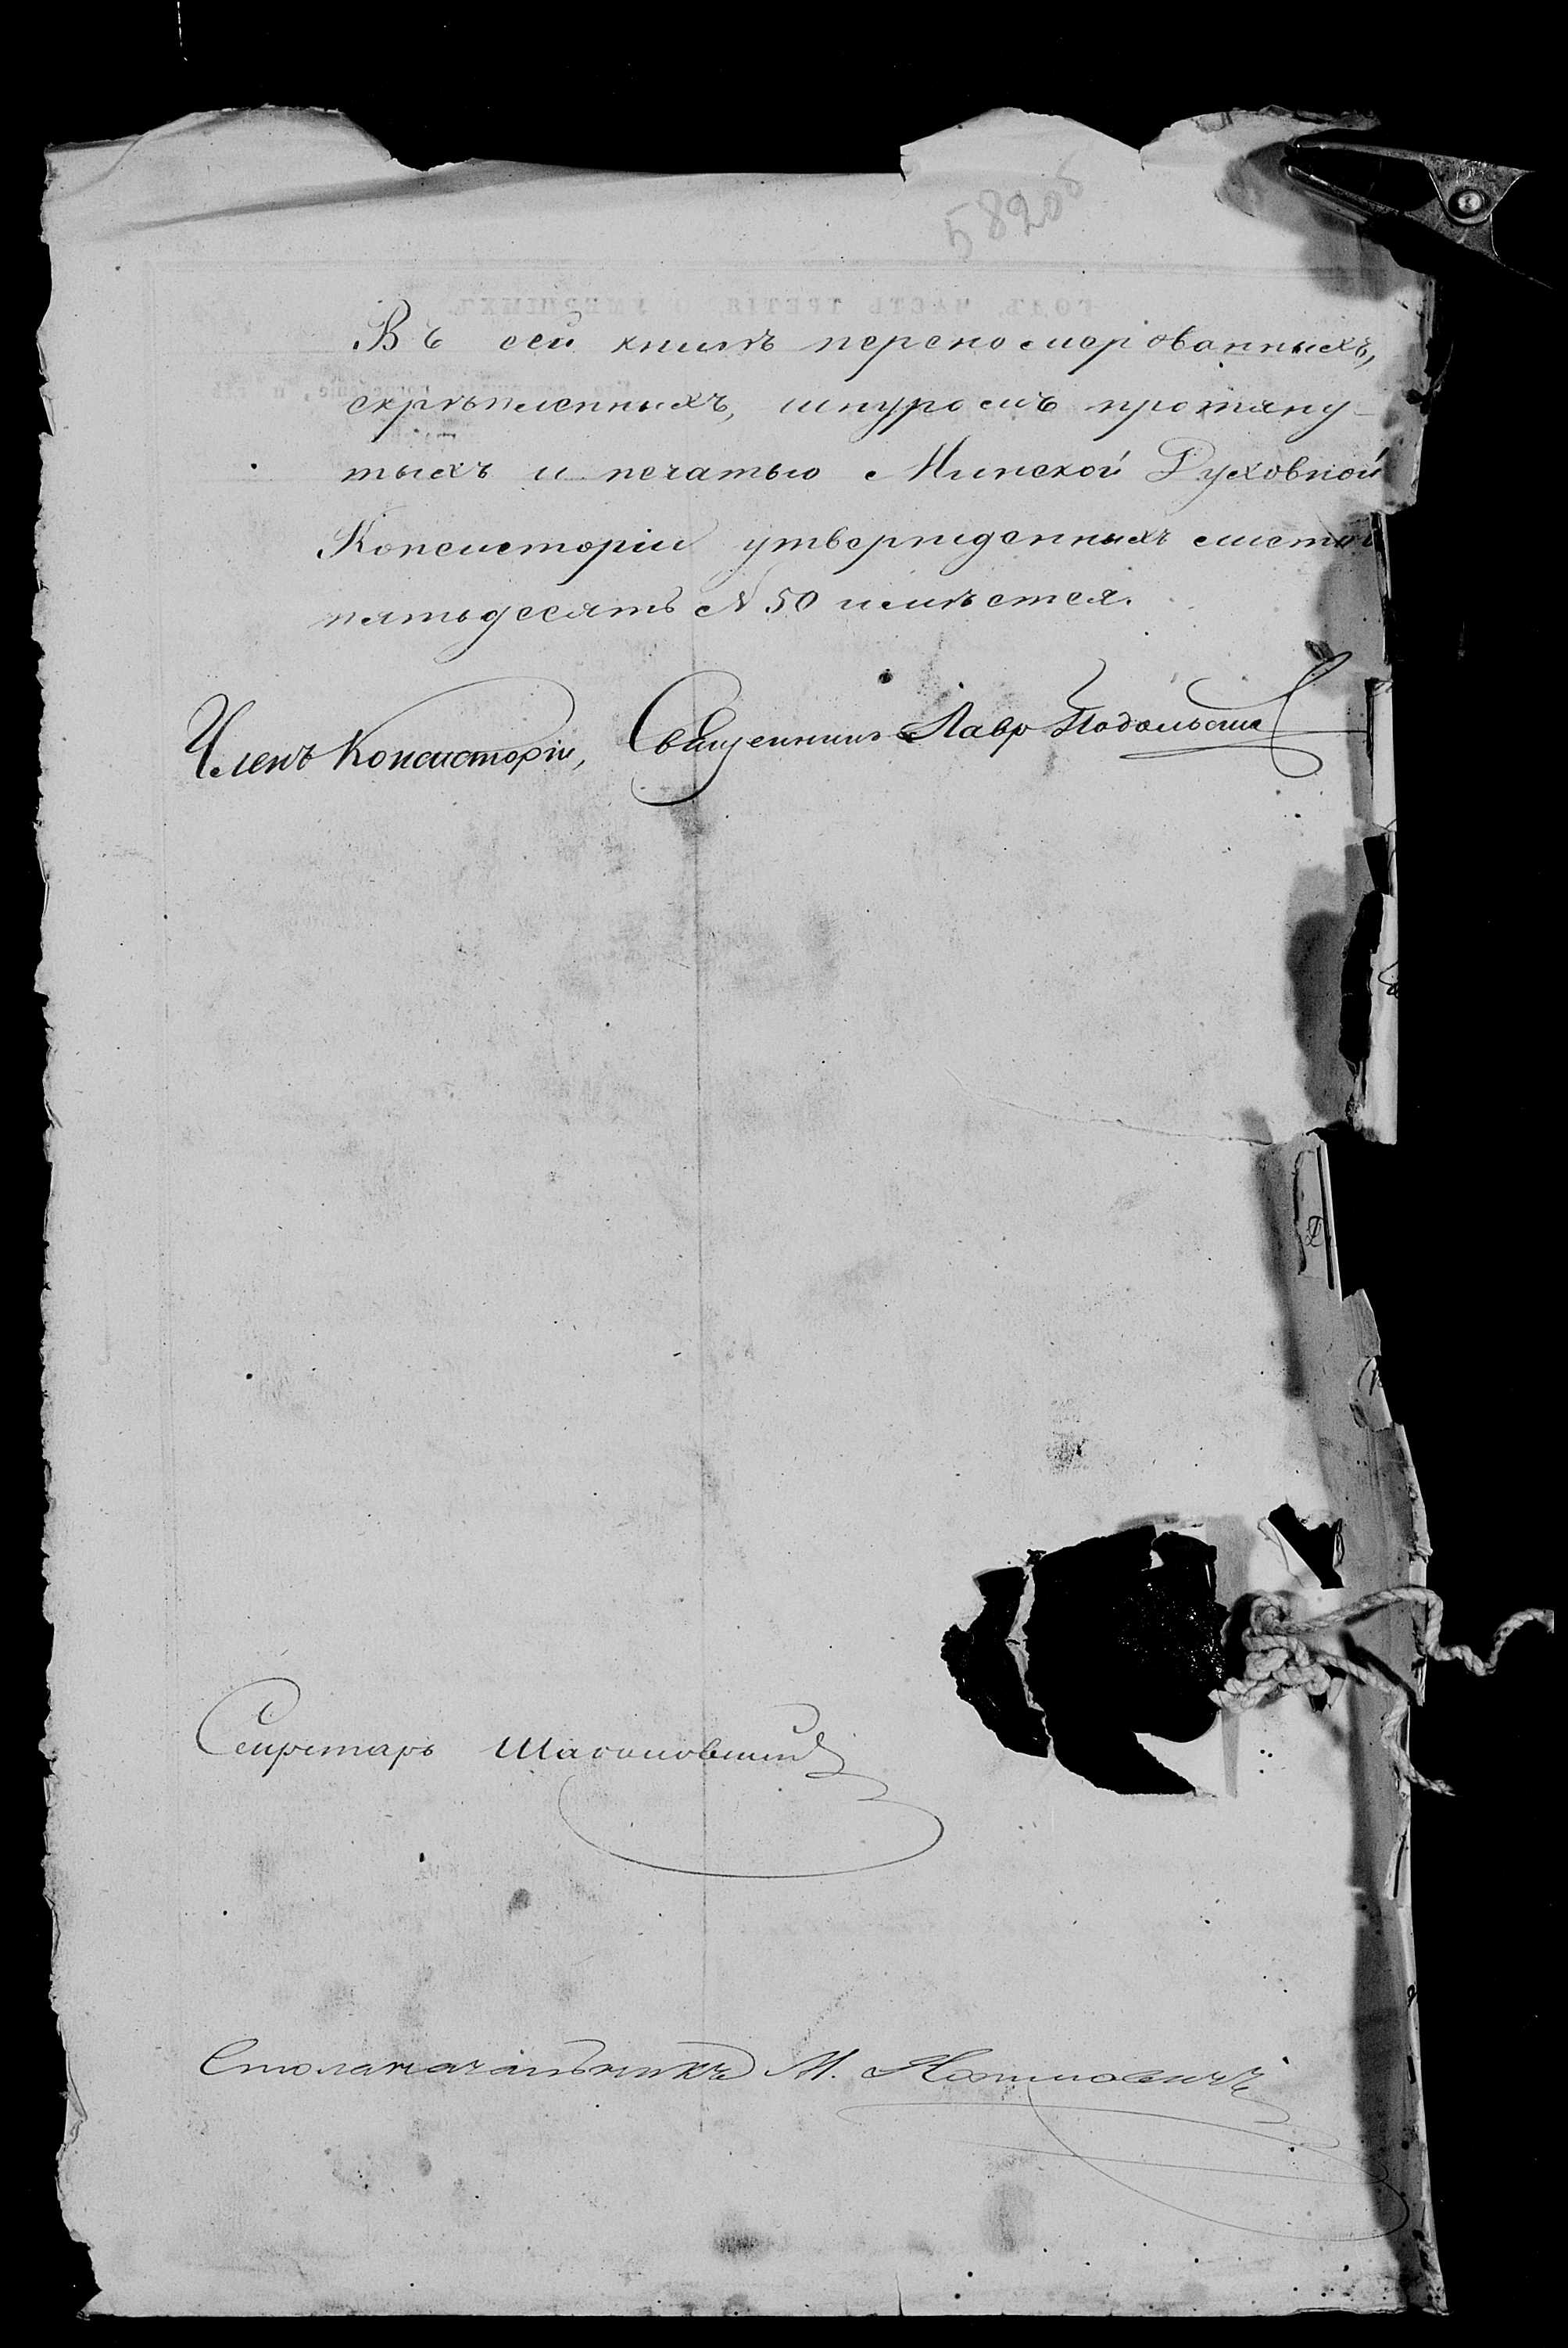 582об
Въ сей книгѣ перенумерованныхъ,
скрѣпленныхъ, шнуромъ протяну-
тыхъ и печатью Минской Духовной
Консисторіи утвержденныхъ листовъ
пятьдесятъ № 50 имѣется.
Членъ Консисторіи, Священникъ Лавръ Подольскій
Секретарь
Столоначальникъ М.